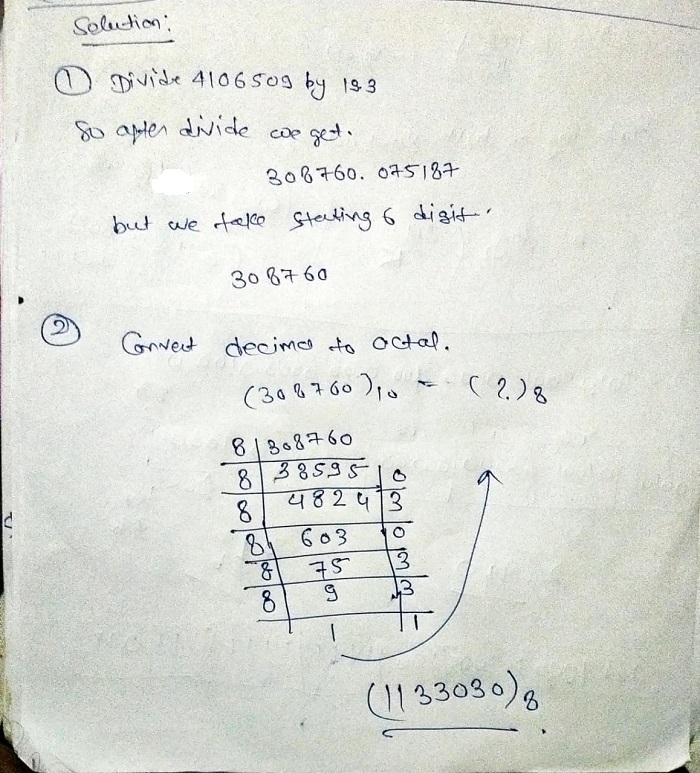 Solution:
① Divide 4106509 by 133
So after divide we get.
308760.075187
but we take starting 6 digit.
308760
② Convert decimal to octal.
(308760)10 = (?)8
8 308760
8 38595 0
8 4824 3
8 603 0
8 75 3
8 9 3
1 1
(1133030)8